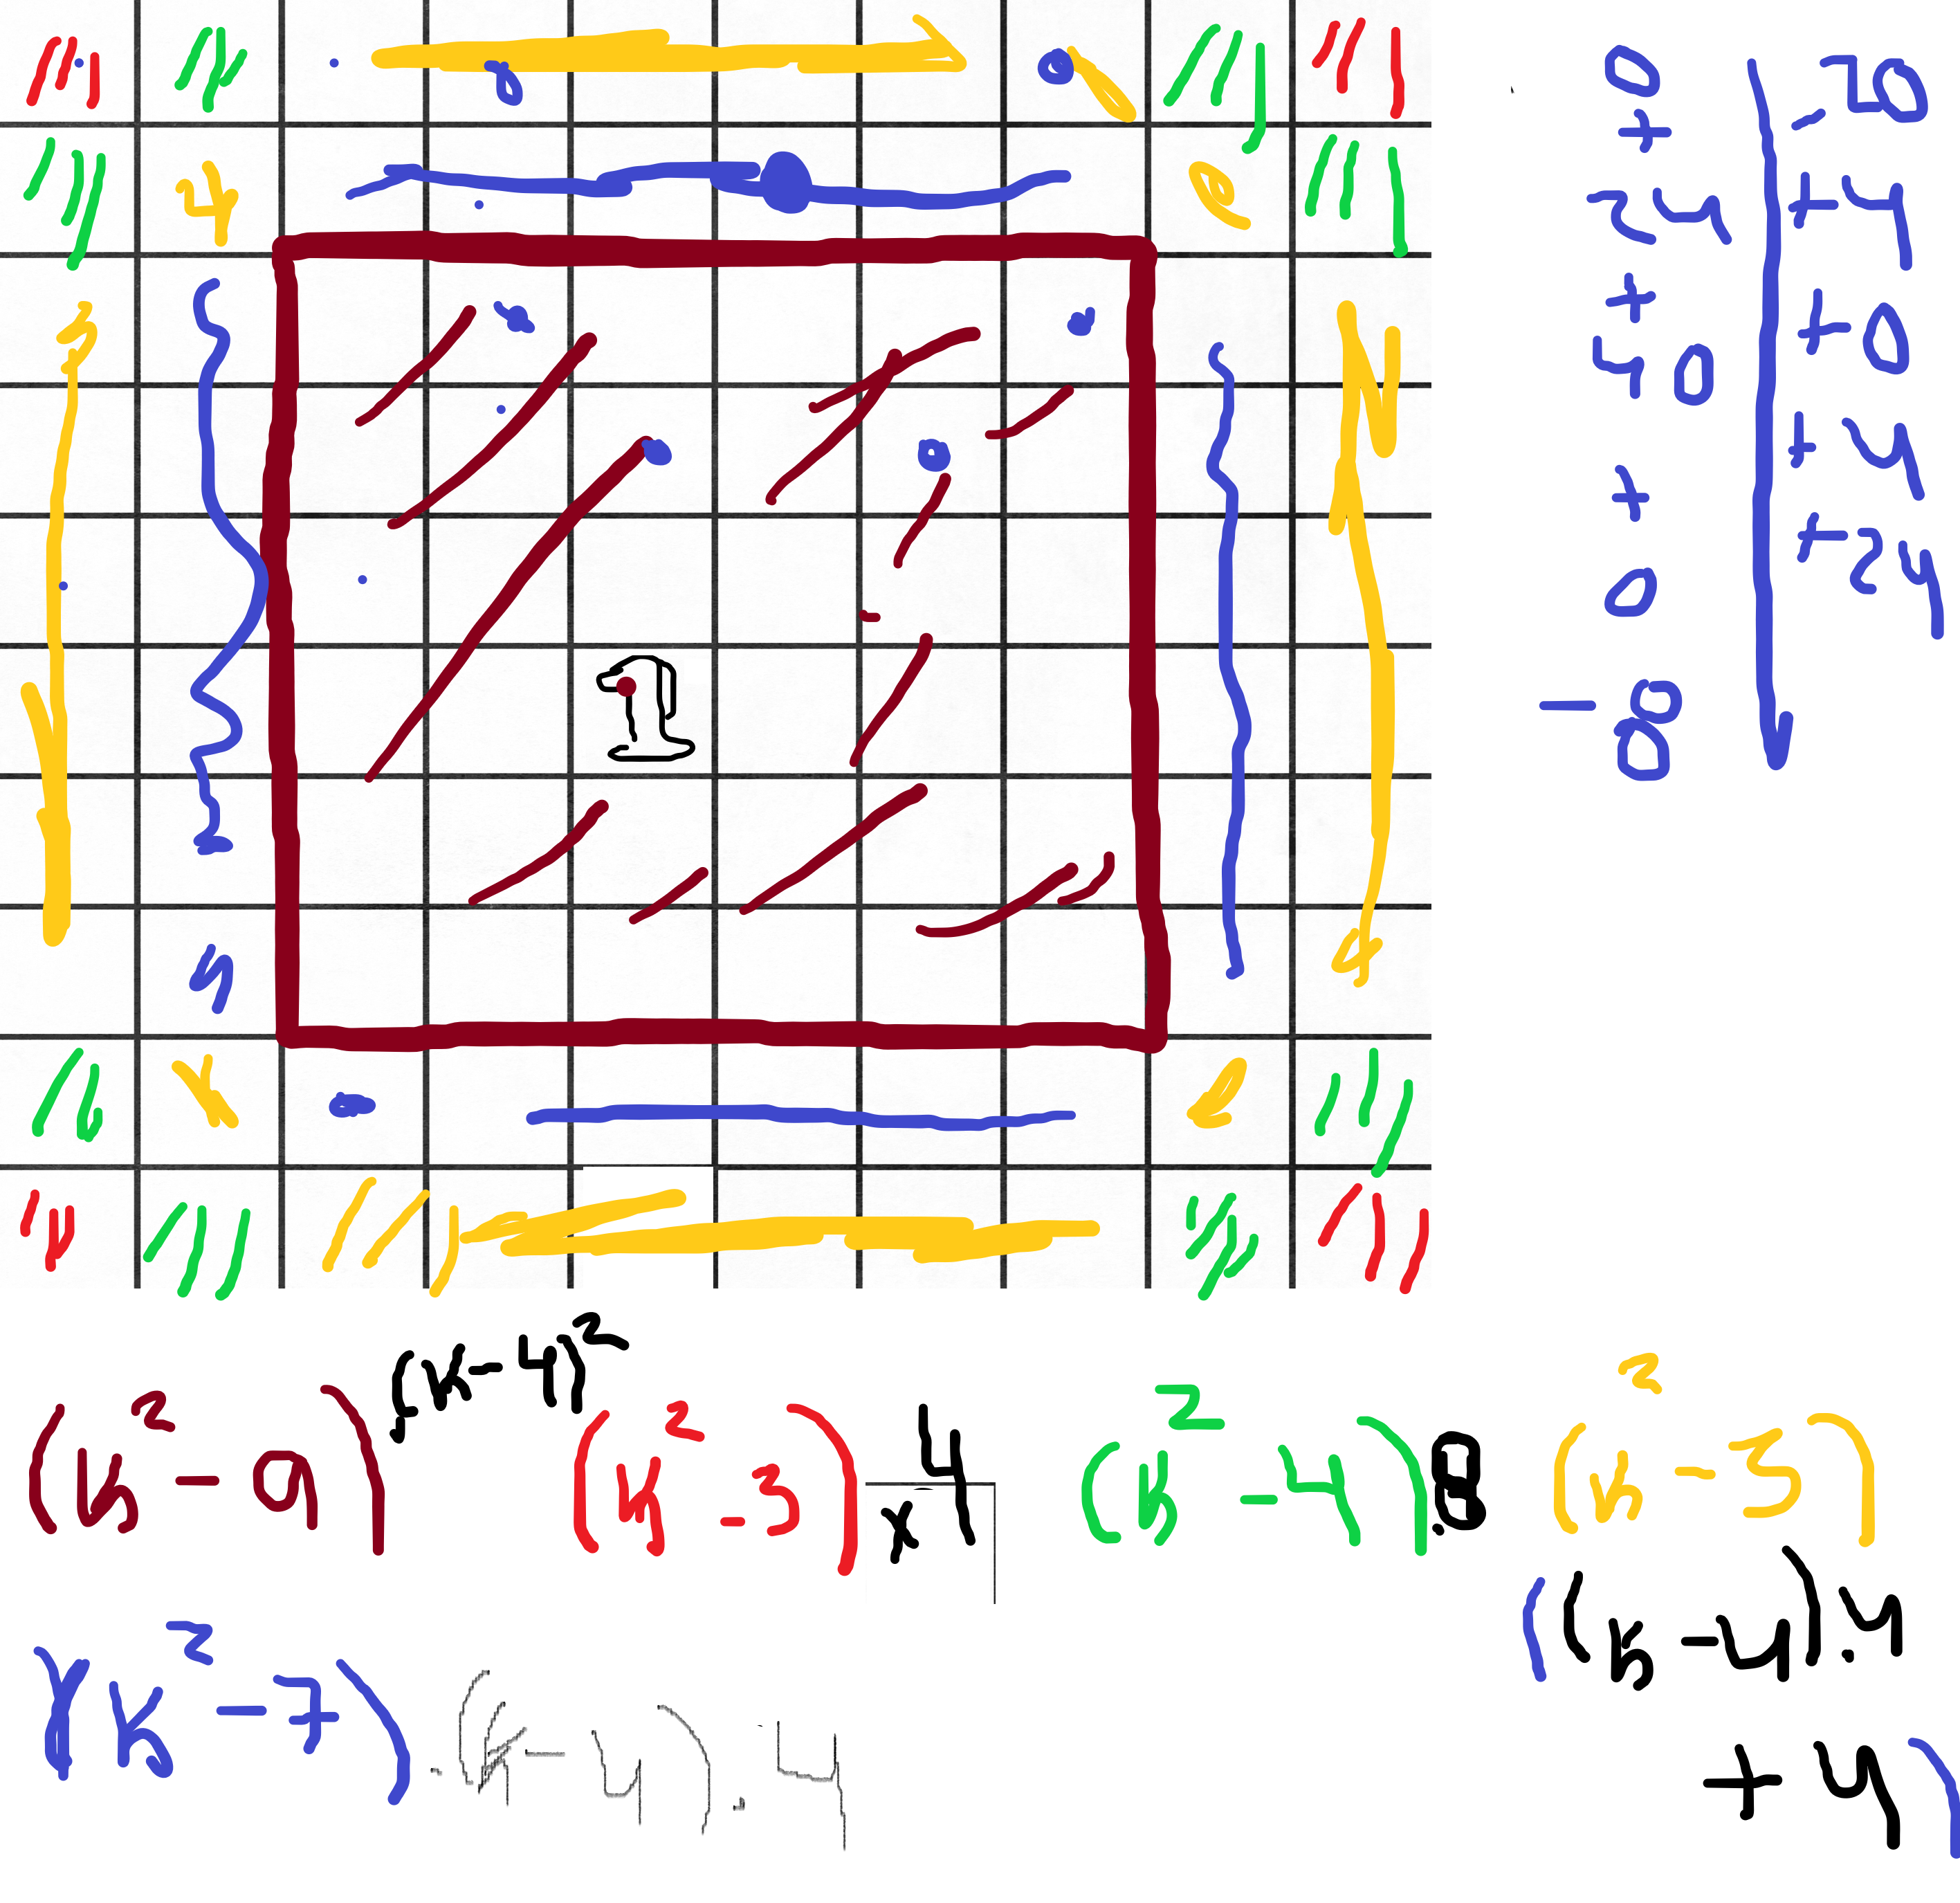 0
+
24
+
40
+
0
- 8 8
-20
+4
+0
+4
+24
(k² - 9) (k-4)²
(k² - 3) x 4
(k² - 4) 8
(k² - 3)
((k - 4) . 4
+ 4)
(k² - 7) . (k - 4) . 4